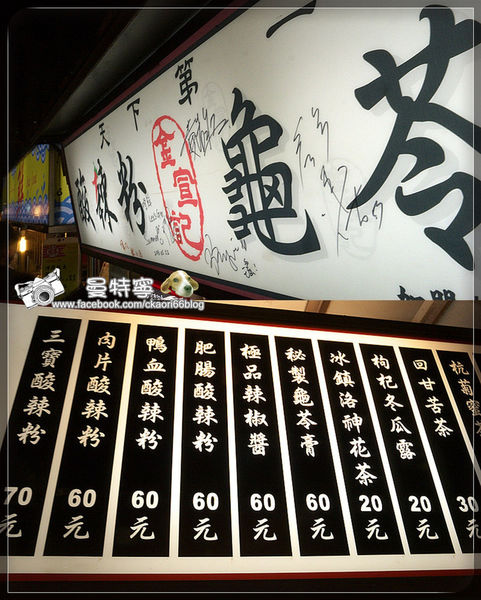 天下第一
酸辣粉
金宣記
龜苓
曼特寧
www.facebook.com/ckaori66blog
三寶酸辣粉 70元
肉片酸辣粉 60元
鴨血酸辣粉 60元
肥腸酸辣粉 60元
極品辣椒醬 60元
秘製龜苓膏 60元
冰鎮洛神花茶 20元
枸杞冬瓜露 20元
回甘苦茶 20元
杭菊蜜 30元